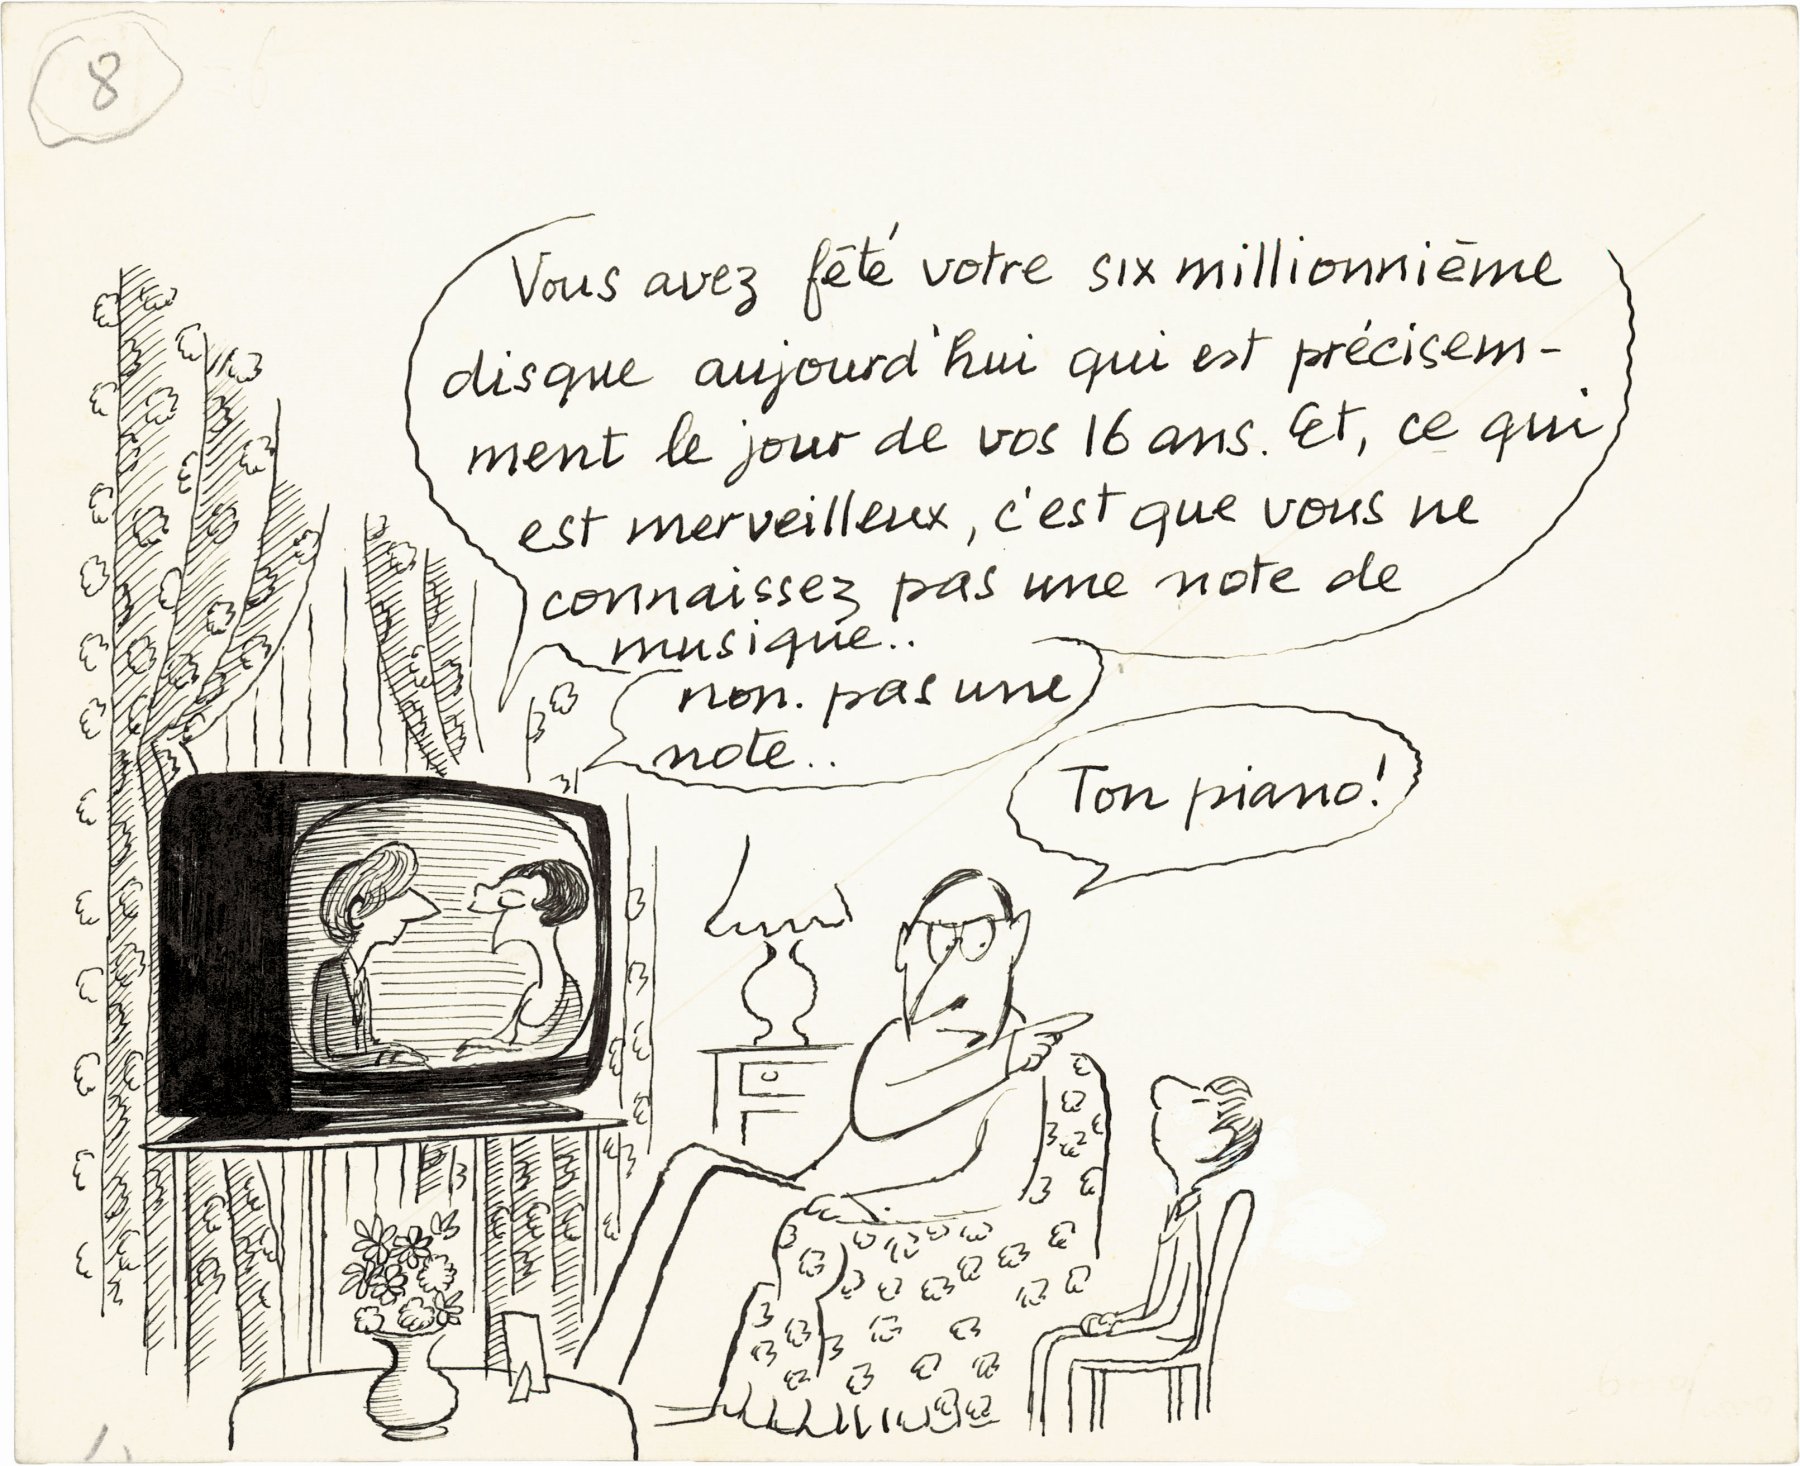 8
Vous avez fêté votre six millionnième
disque aujourd'hui qui est précisem-
ment le jour de vos 16 ans. Et, ce qui
est merveilleux, c'est que vous ne
connaissez pas une note de
musique..
non. pas une
note..
Ton piano!